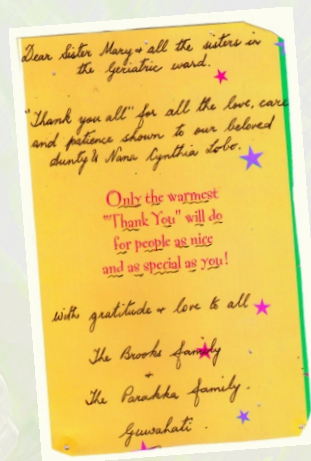 Dear Sister Mary & all the sisters in
the Geriatric ward.
"Thank you all" for all the love, care
and patience shown to our beloved
Aunty & Nana Cynthia Lobo.
Only the warmest
"Thank You" will do
for people as nice
and as special as you!
with gratitude & love to all
The Brooks family
+
The Parakka family.
Guwahati.